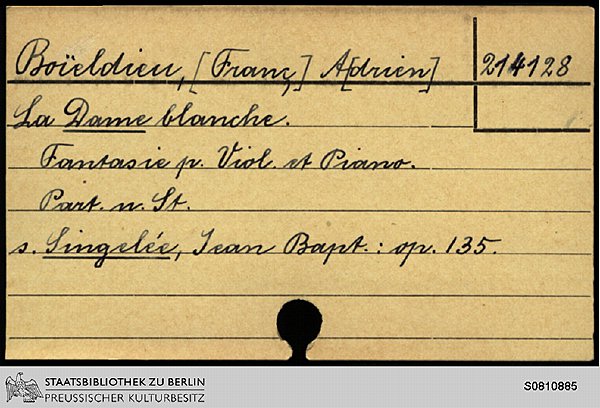 Boïeldieu, [Franç] A[drien] 214128
La Dame blanche.
Fantasie p. Viol. et Piano.
Part. u. St.
s. Singelée, Jean Bapt.: op. 135.
STAATSBIBLIOTHEK ZU BERLIN
PREUSSISCHER KULTURBESITZ
S0810885